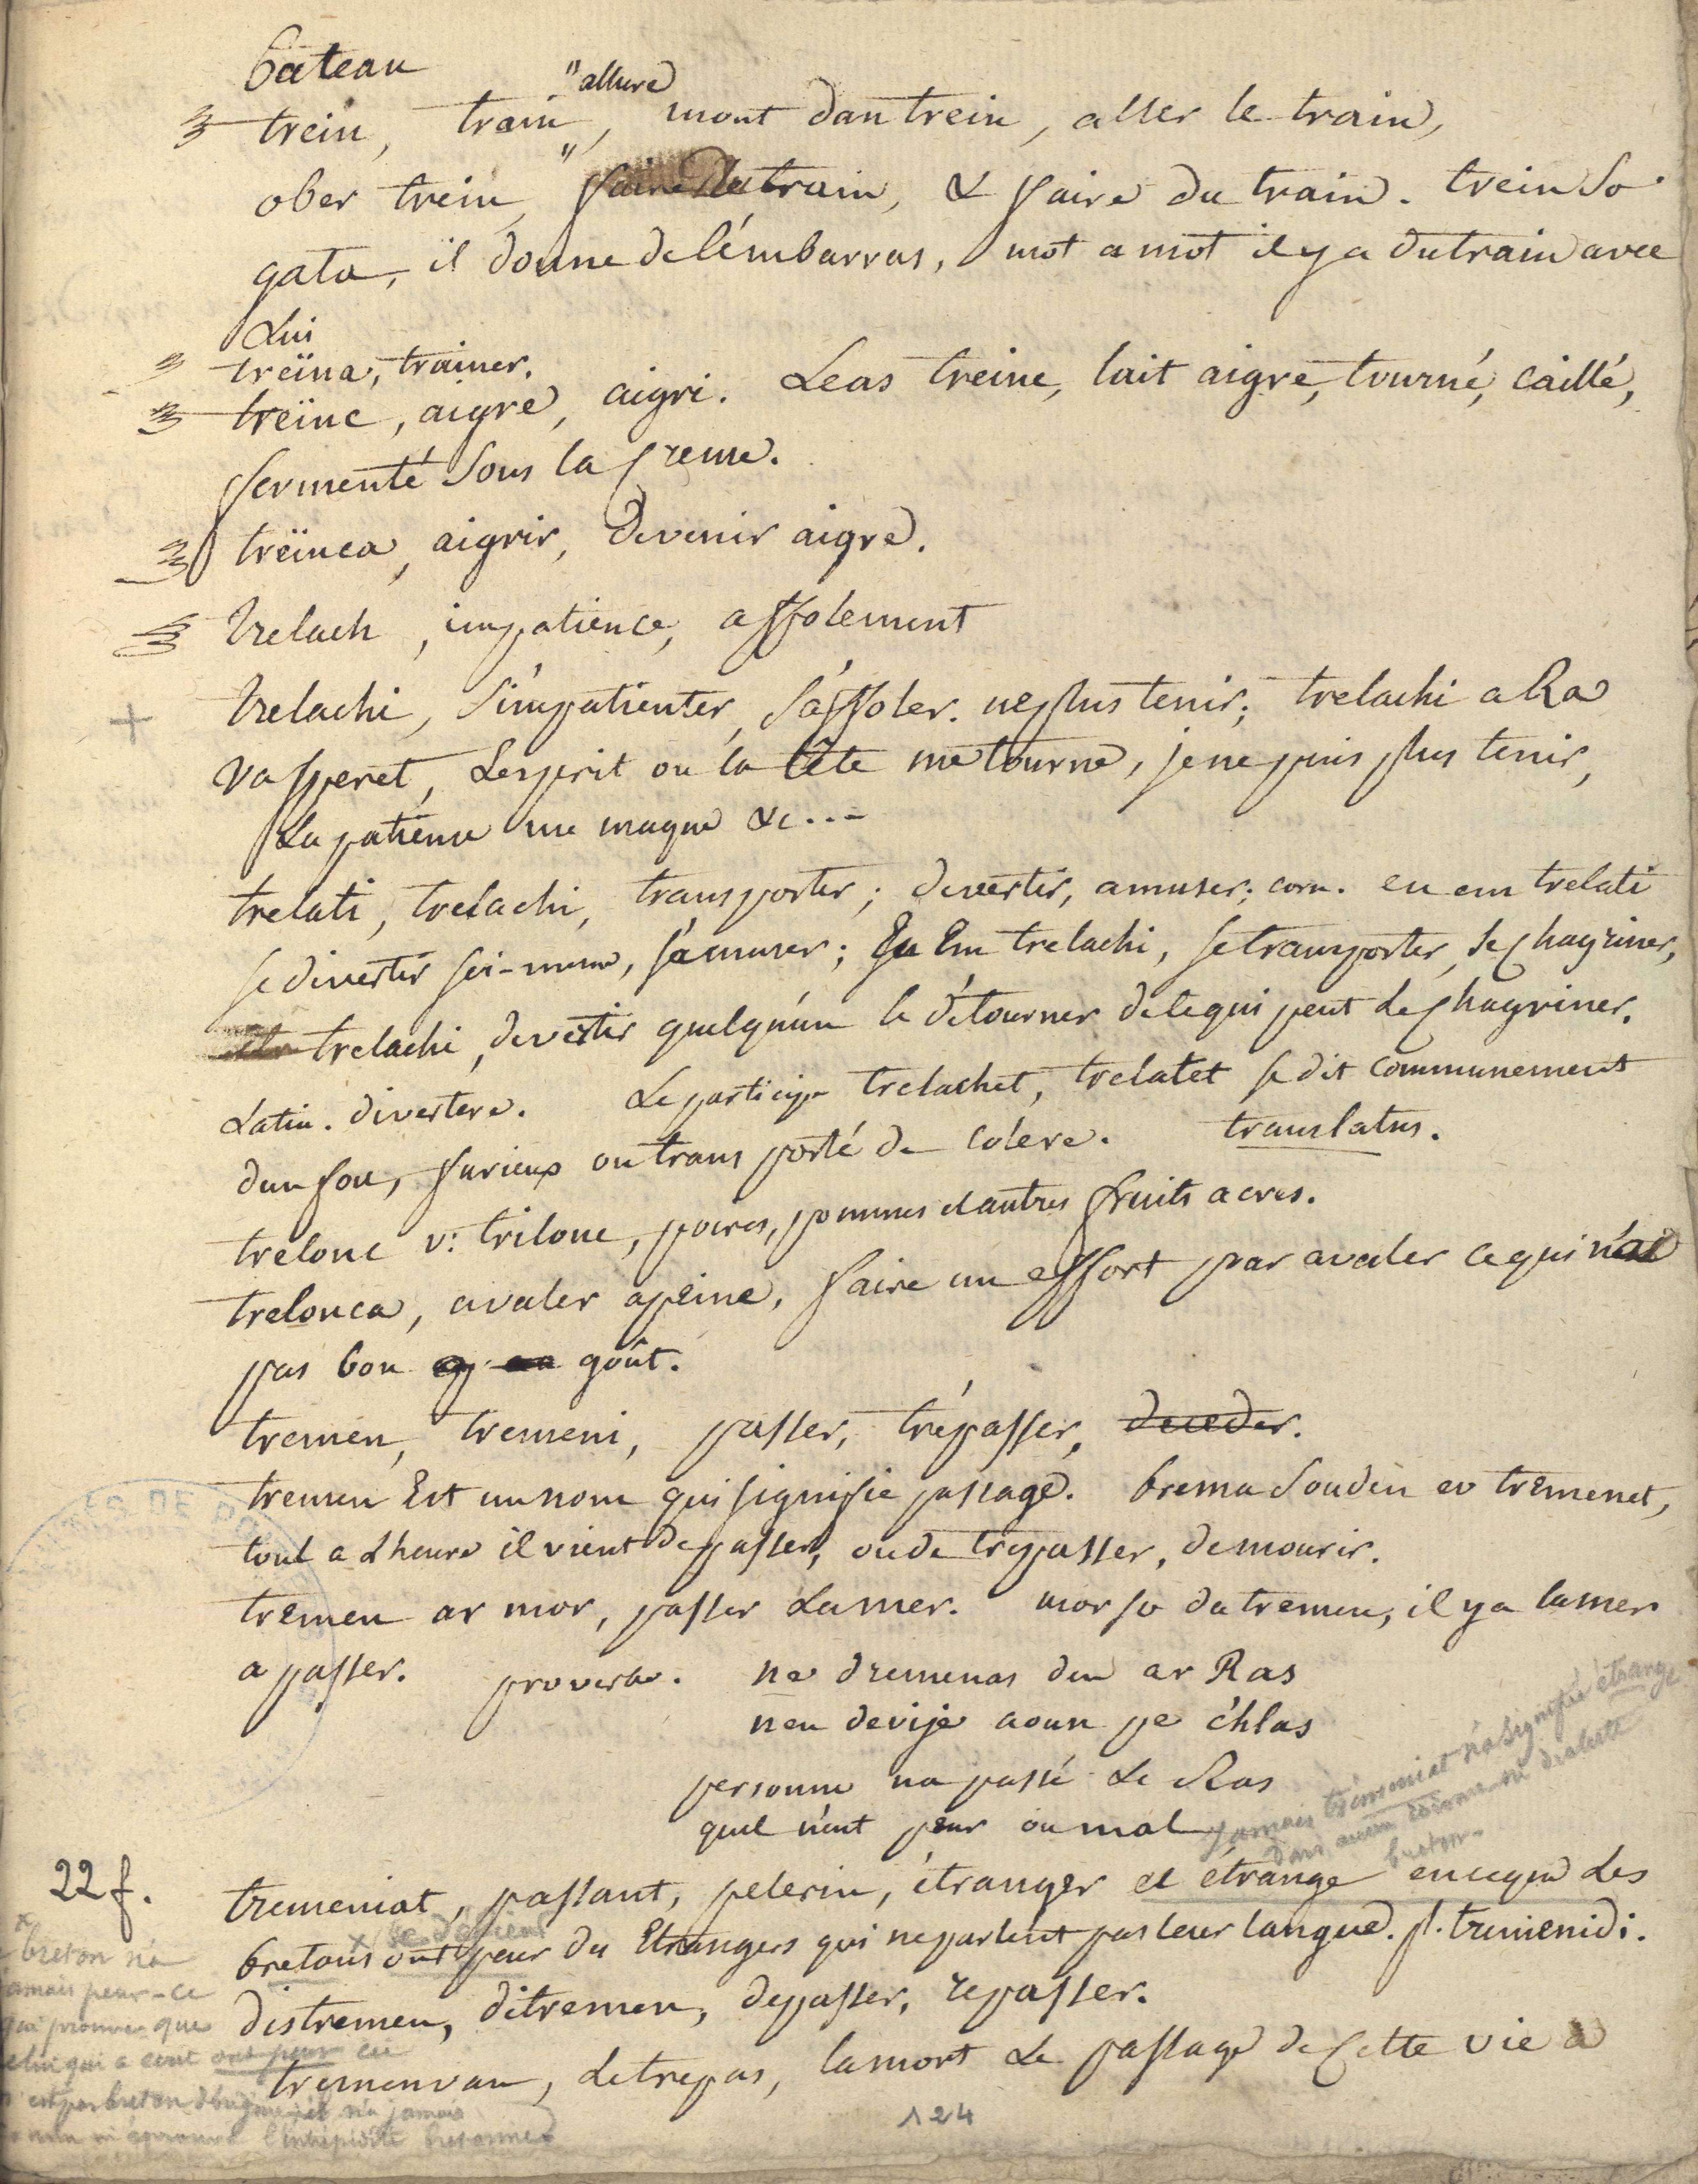 bateau
trein, train, "allure" mont dan trein, aller le train,
ober trein, faire le train, & faire du train. trein so
gata, il donne de l'émbarras, mot a mot il y a du train avec
Lui
treïna, trainer.
treïnc, aigre, aigri. Leas treinc, lait aigre, tourné, caillé,
fermenté sous la creme.
treïnca, aigrir, devenir aigre.
trelach, impatience, affolement
trelachi, s'impatienter, s'affoler. ne plus tenir; trelachi a Ra
va speret, L'esprit ou la tête me tourne, je ne puis plus tenir,
La patience me maque &c...
trelati, trelachi, transporter; divertir, amuser; corn. en em trelati
se divertir soi-meme, s'amuser; En Em trelachi, se transporter, se chagriner,
trelachi, divertir quelqu'un le détourner de ce qui peut le chagriner.
Latin. divertere. Le participe trelachet, trelatet se dit communement
d'un fou, furieux ou transporté de colere. translatus.
trelonc v: trilonc, poires, pommes et autres fruits acres.
trelonca, avaler apeine, faire un effort par avaler ce qui n'est
pas bon goût.
tremen, tremeni, passer, trépasser, deceder.
tremen Est un nom qui signifie passage. brema souden eo tremenet,
tout a L'heure il vient de passer, ou de trepasser, de mourir.
tremen ar mor, passer La mer. mor so da tremen, il y a la mer
a passer. proverbe. ne dremenas den ar Ras
neu devije aoun pe c'hlas
personne n'a passé Le Ras
qu'il n'eut peur ou mal
jamais trémeniat n'a signifié étrange
dans aucun idiome ni dialecte
breton.
22 f.
tremeniat, passant, pelerin, étranger et étrange en ce que Les
x se défient
bretons ont peur des Etrangers qui ne parlent pas leur langue. pl. tremenidi.
distremen, ditremen, depasser, repasser.
tremenvan, Le trepas, la mort Le passage de Cette vie a
x
breton n'a
jamais peur - ce
qui prouve que
celui qui a ecrit ont peur
n'est pas breton d'origine et n'a jamais
l'intrépidité bretonne
124